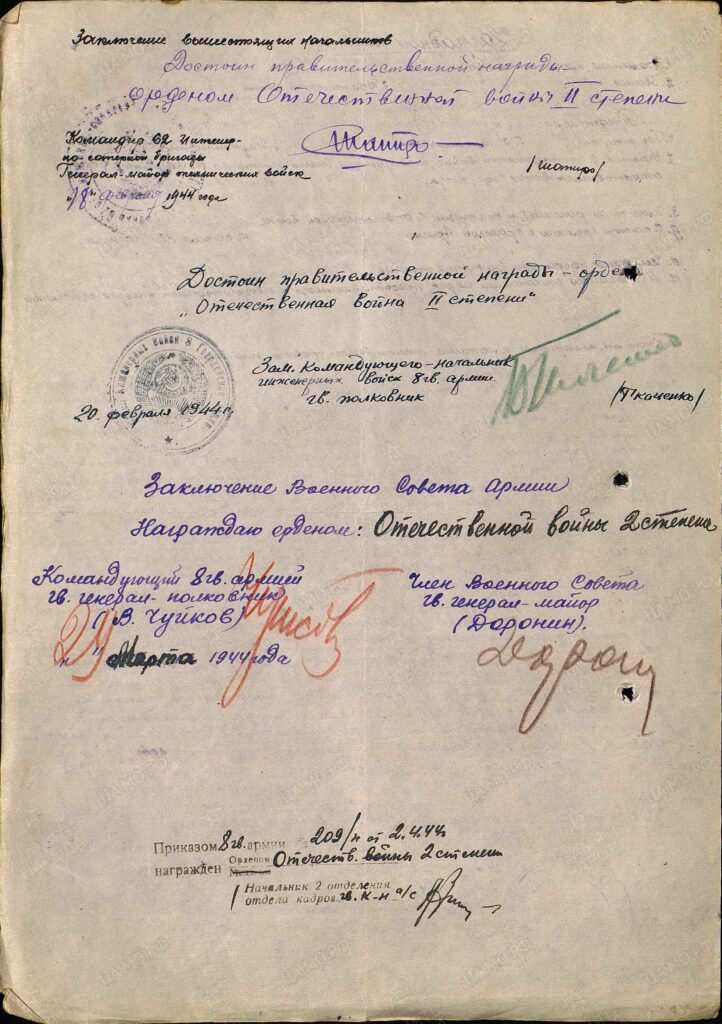 Заключение вышестоящих начальников
Достоин правительственной награды
орденом Отечественная война II степени
Командир 62 Инженер-
но-саперной бригады
Генерал-майор технических войск
/Шапиро/
"18" февраля 1944 года
Достоин правительственной награды – ордена
„Отечественная война II степени"
Зам. Командующего – начальник
инженерных войск 8 гв. армии
гв. полковник
/Ткаченко/
20. февраля 1944 г.
Заключение Военного Совета Армии
Награждаю орденом: Отечественной войны 2 степени
Командующий 8 гв. армией
гв. генерал-полковник
(В. Чуйков)
"29" Марта 1944 года
Член Военного Совета
гв. генерал-майор
(Доронин).
Приказом 8 гв. армии 209/н от 2.4.44г
награжден Орденом Медалью Отечеств. войны 2 степени
Начальник 2 отделения
отдела кадров гв. к-н а/с